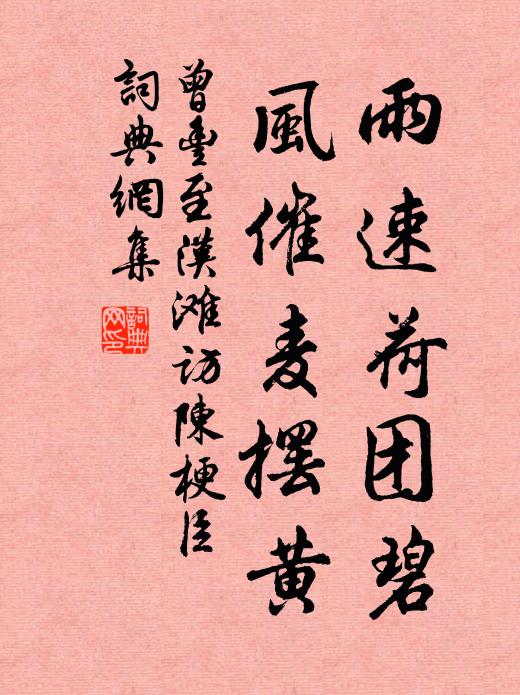 雨速荷团碧
風催麦摆黄
曾豐至漢滩访陳梗臣
詞典網集
詞典网印